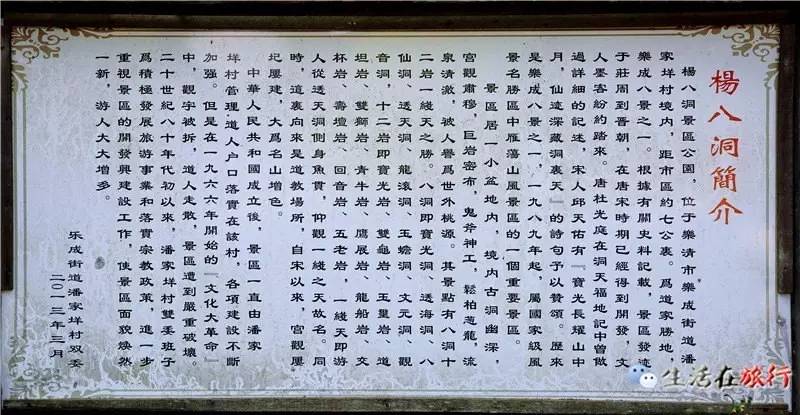 楊八洞簡介
楊八洞景區公園，位于樂清市樂成街道潘
家垟村境内，距市區約七公裏。爲道家勝地，
樂成八景之一。根據有關史料記載，景區發迹
于莊周到晋朝，在唐宋時期已經得到開發，文
人墨客紛約踏來。唐杜光庭在洞天福地記中曾做
過詳細的記述，宋人邱天佑有『寶光長耀山中
月，仙逵深藏洞裏天』的詩句予以贊頌。歷來
是樂成八景之一，一九八九年起，屬國家級風
景名勝區中雁蕩山風景區的一個重要景區。
景區居一小盆地内，境内古洞幽深，
宫觀肅穆，巨岩密布，鬼斧神工，鬆柏葱龍，流
泉清澈，被人譽爲世外桃源。其景點有八洞十
二岩一綫天之勝。八洞即寶光洞、透海洞、八
仙洞、透天洞、龍滚洞、玉蟾洞、文元洞、觀
音洞，十二岩即寶光岩、雙龜岩、玉皇岩、道
坦岩、雙獅岩、青牛岩、鷹展岩、龍船岩、交
杯岩、壽壇岩、回音岩、五老岩，一綫天即游
人從透天洞側身魚貫，仰觀一綫之天故名。同
時，這裏向來是道教場所，自宋以來，宫觀屢
圮屢建，大爲名山增色。
中華人民共和國成立後，景區一直由潘家
垟村管理，道人户口落實在該村，各項建設不斷
加强。但是在一九六六年開始的『文化大革命』
中，觀宇被拆，道人走散，景區遭到嚴重破壞。
二十世紀八十年代初以來，潘家垟村雙委班子
爲積極發展旅游事業和落實宗教政策，進一步
重視景區的開發與建設工作，使景區面貌焕然
一新，游人大大增多。
乐成街道潘家垟村双委
二〇一三年三月
生活在旅行